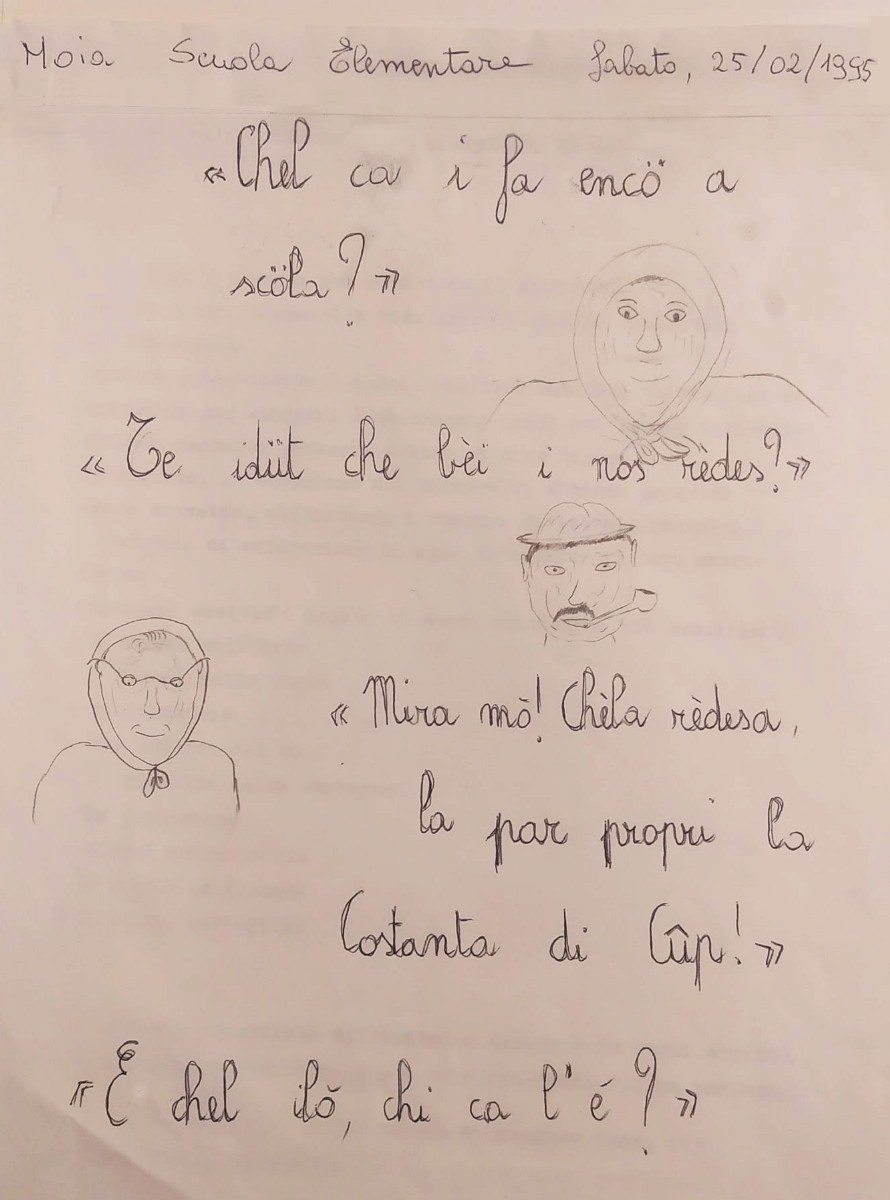 Moia Scuola Elementare Sabato, 25/02/1995
«Chel ca i fa encö a
scöla?»
«Te idüt che bèi i nos rèdes?»
«Mira mò! Chèla rèdesa,
la par propri la
Costanta di Cûp!»
«E chel ilò, chi ca l'é?»